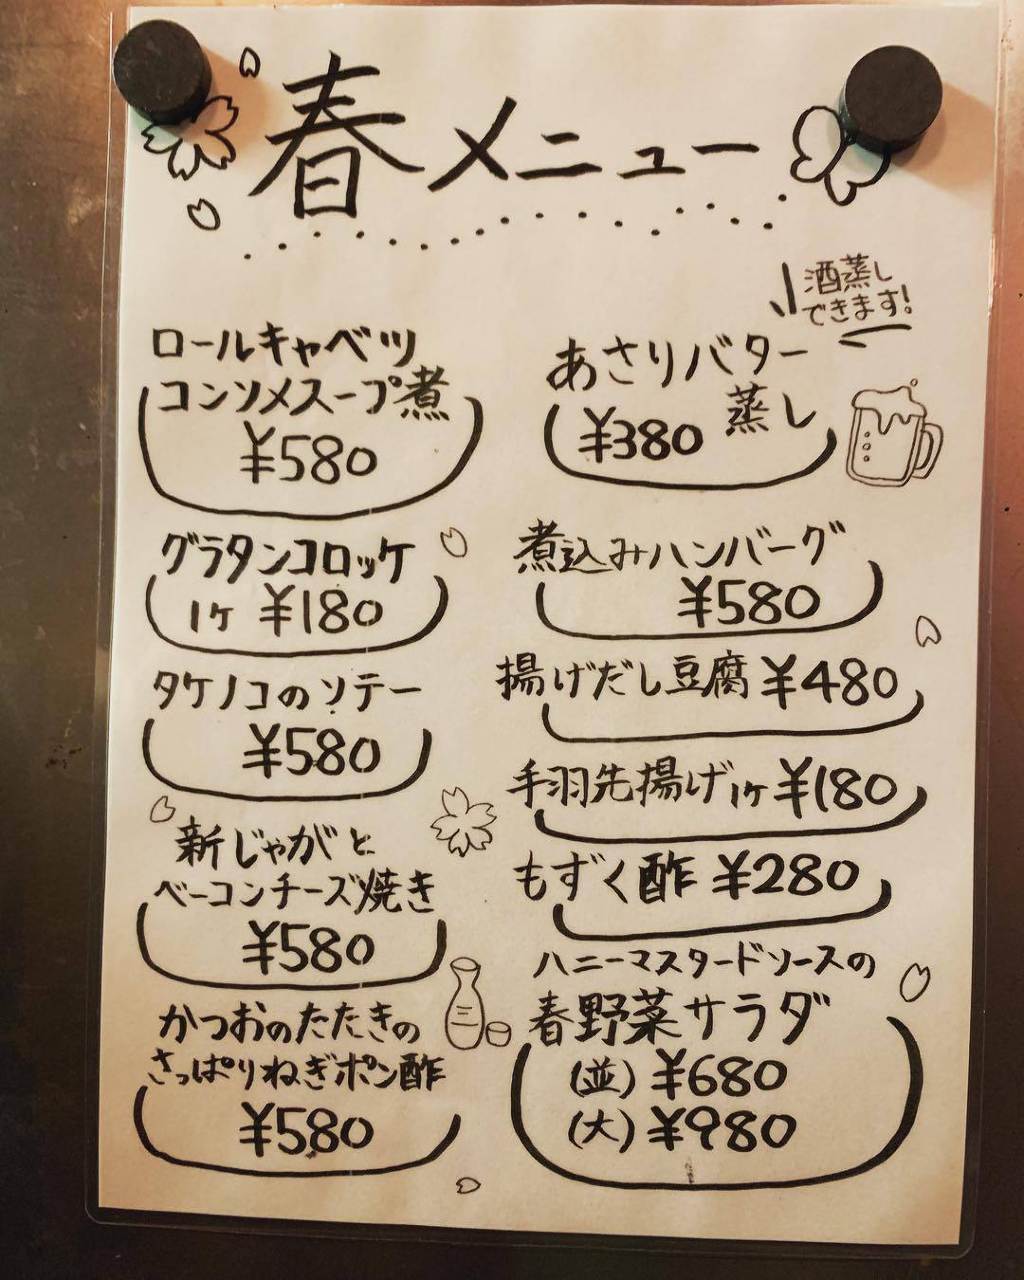 春メニュー
ロールキャベツ
コンソメスープ煮
¥580
グラタンコロッケ
1ヶ ¥180
タケノコのソテー
¥580
新じゃがと
ベーコンチーズ焼き
¥580
かつおのたたきの
さっぱりねぎポン酢
¥580
酒蒸し
できます!
あさりバター
蒸し
¥380
煮込みハンバーグ
¥580
揚げだし豆腐 ¥480
手羽先揚げ 1ヶ ¥180
もずく酢 ¥280
ハニーマスタードソースの
春野菜サラダ
(並) ¥680
(大) ¥980